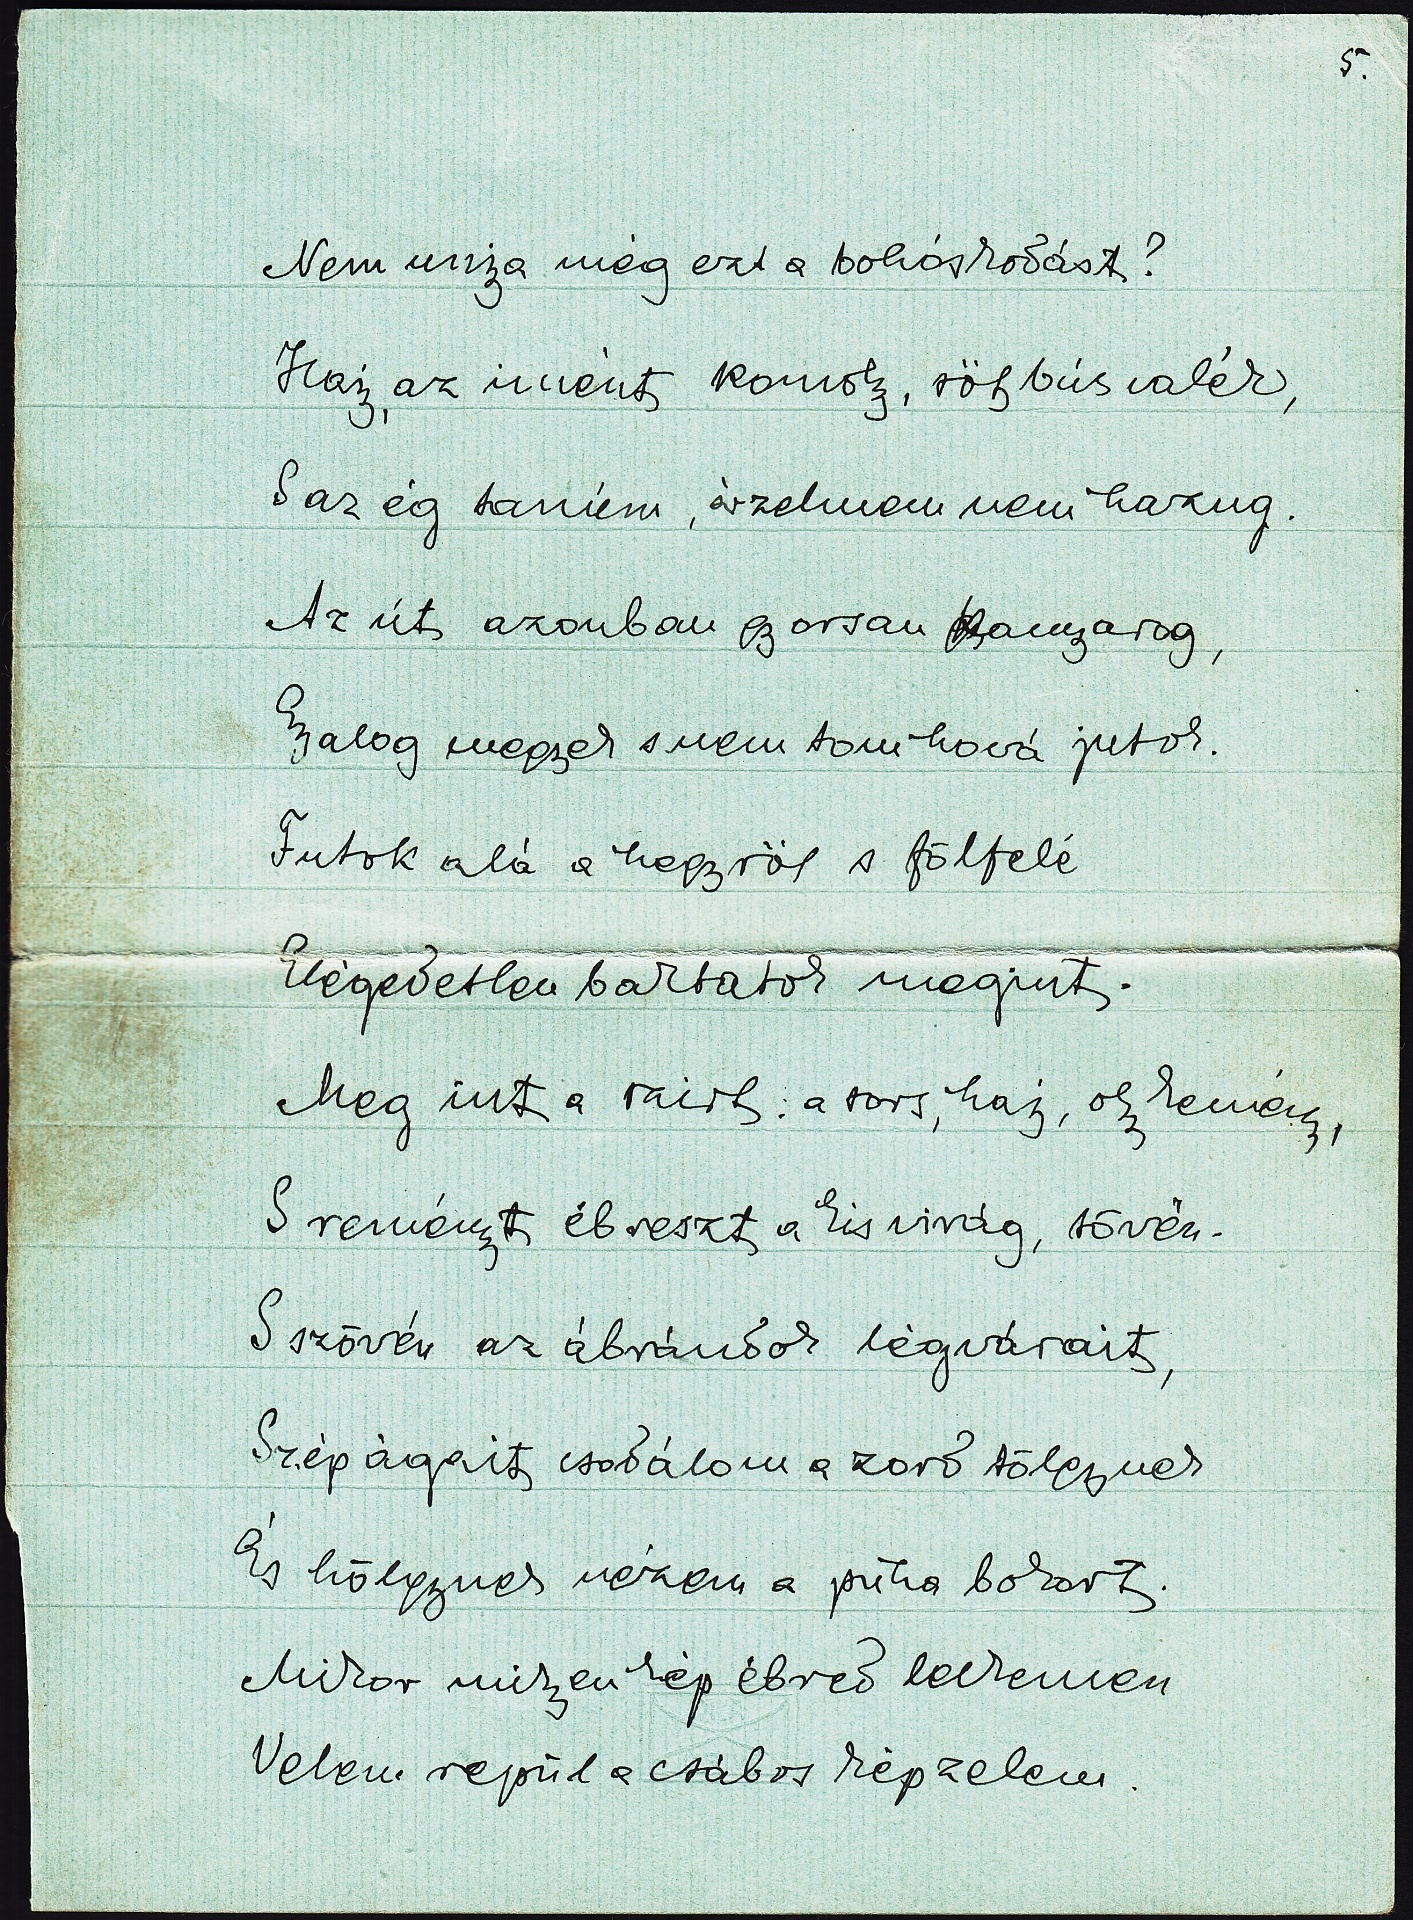 5.
Nem unja még ezt a bohóskodást?
Haj, az imént komoly, sőt bús valék,
S az ég tanúm, érzelmem nem hazug.
Az út azonban gyorsan kanyarog,
Gyalog megyek s nem tom hová jutok.
Futok alá a hegyről s fölfelé
Elégedetlen baktatok megint.
Meg int a szirt: a sors, haj, oly kemény,
S reményt ébreszt a kis virág, tövén.
S szövén az ábrándok légvárait,
Szép ágait csodálom a zord tölgynek
És hölgynek nézem a puha bokort.
Mikor milyen kép ébred lelkemen
Velem repül a csábos képzelem.